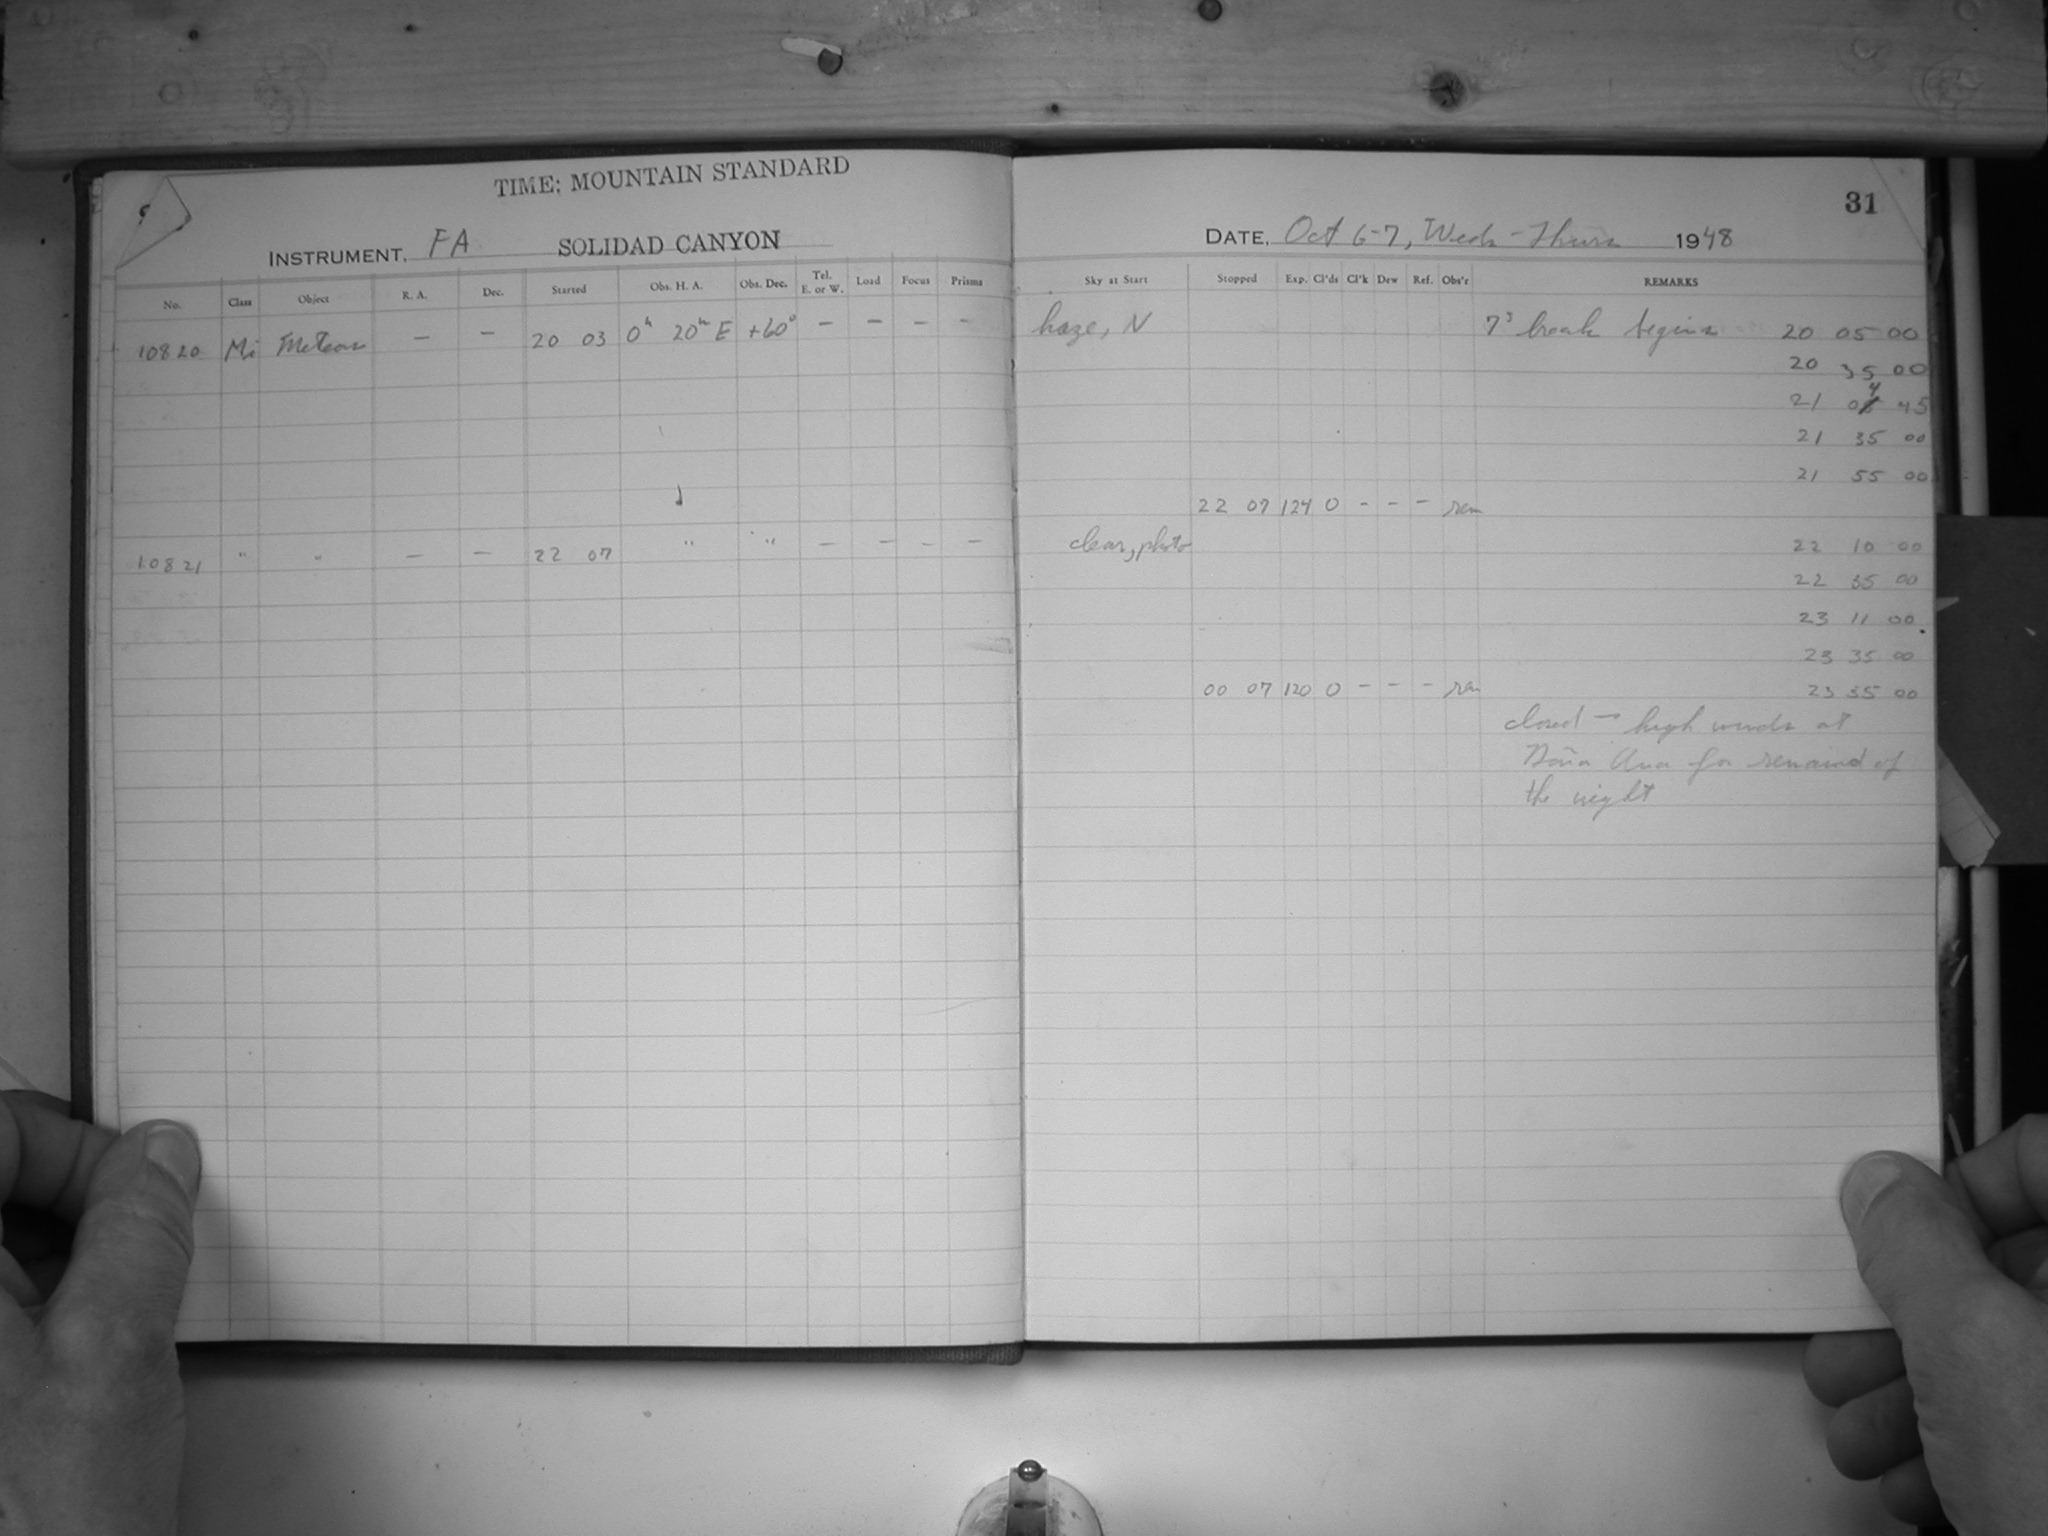 TIME: MOUNTAIN STANDARD
INSTRUMENT, FA SOLIDAD CANYON
No. Class Object R. A. Dec. Started Obs. H. A. Obs. Dec. Tel. E. or W. Load Focus Prisms
10820 Mi Meteors — — 20 03 0h 20m E +60° — — — —
10821 " " — — 22 07 " " — — — —
31
DATE, Oct 6-7, Weds - Thurs 1948
Sky at Start Stopped Exp. Cl'ds Cl'k Dew Ref. Obs'r REMARKS
haze, N 7s break begins 20 05 00
20 35 00
21 04 45
21 35 00
21 55 00
22 07 124 0 - - - rem
clear, photo 22 10 00
22 35 00
23 11 00
23 35 00
00 07 120 0 - - - rem 23 55 00
closed — high winds at
Doña Ana for remaind of
the night